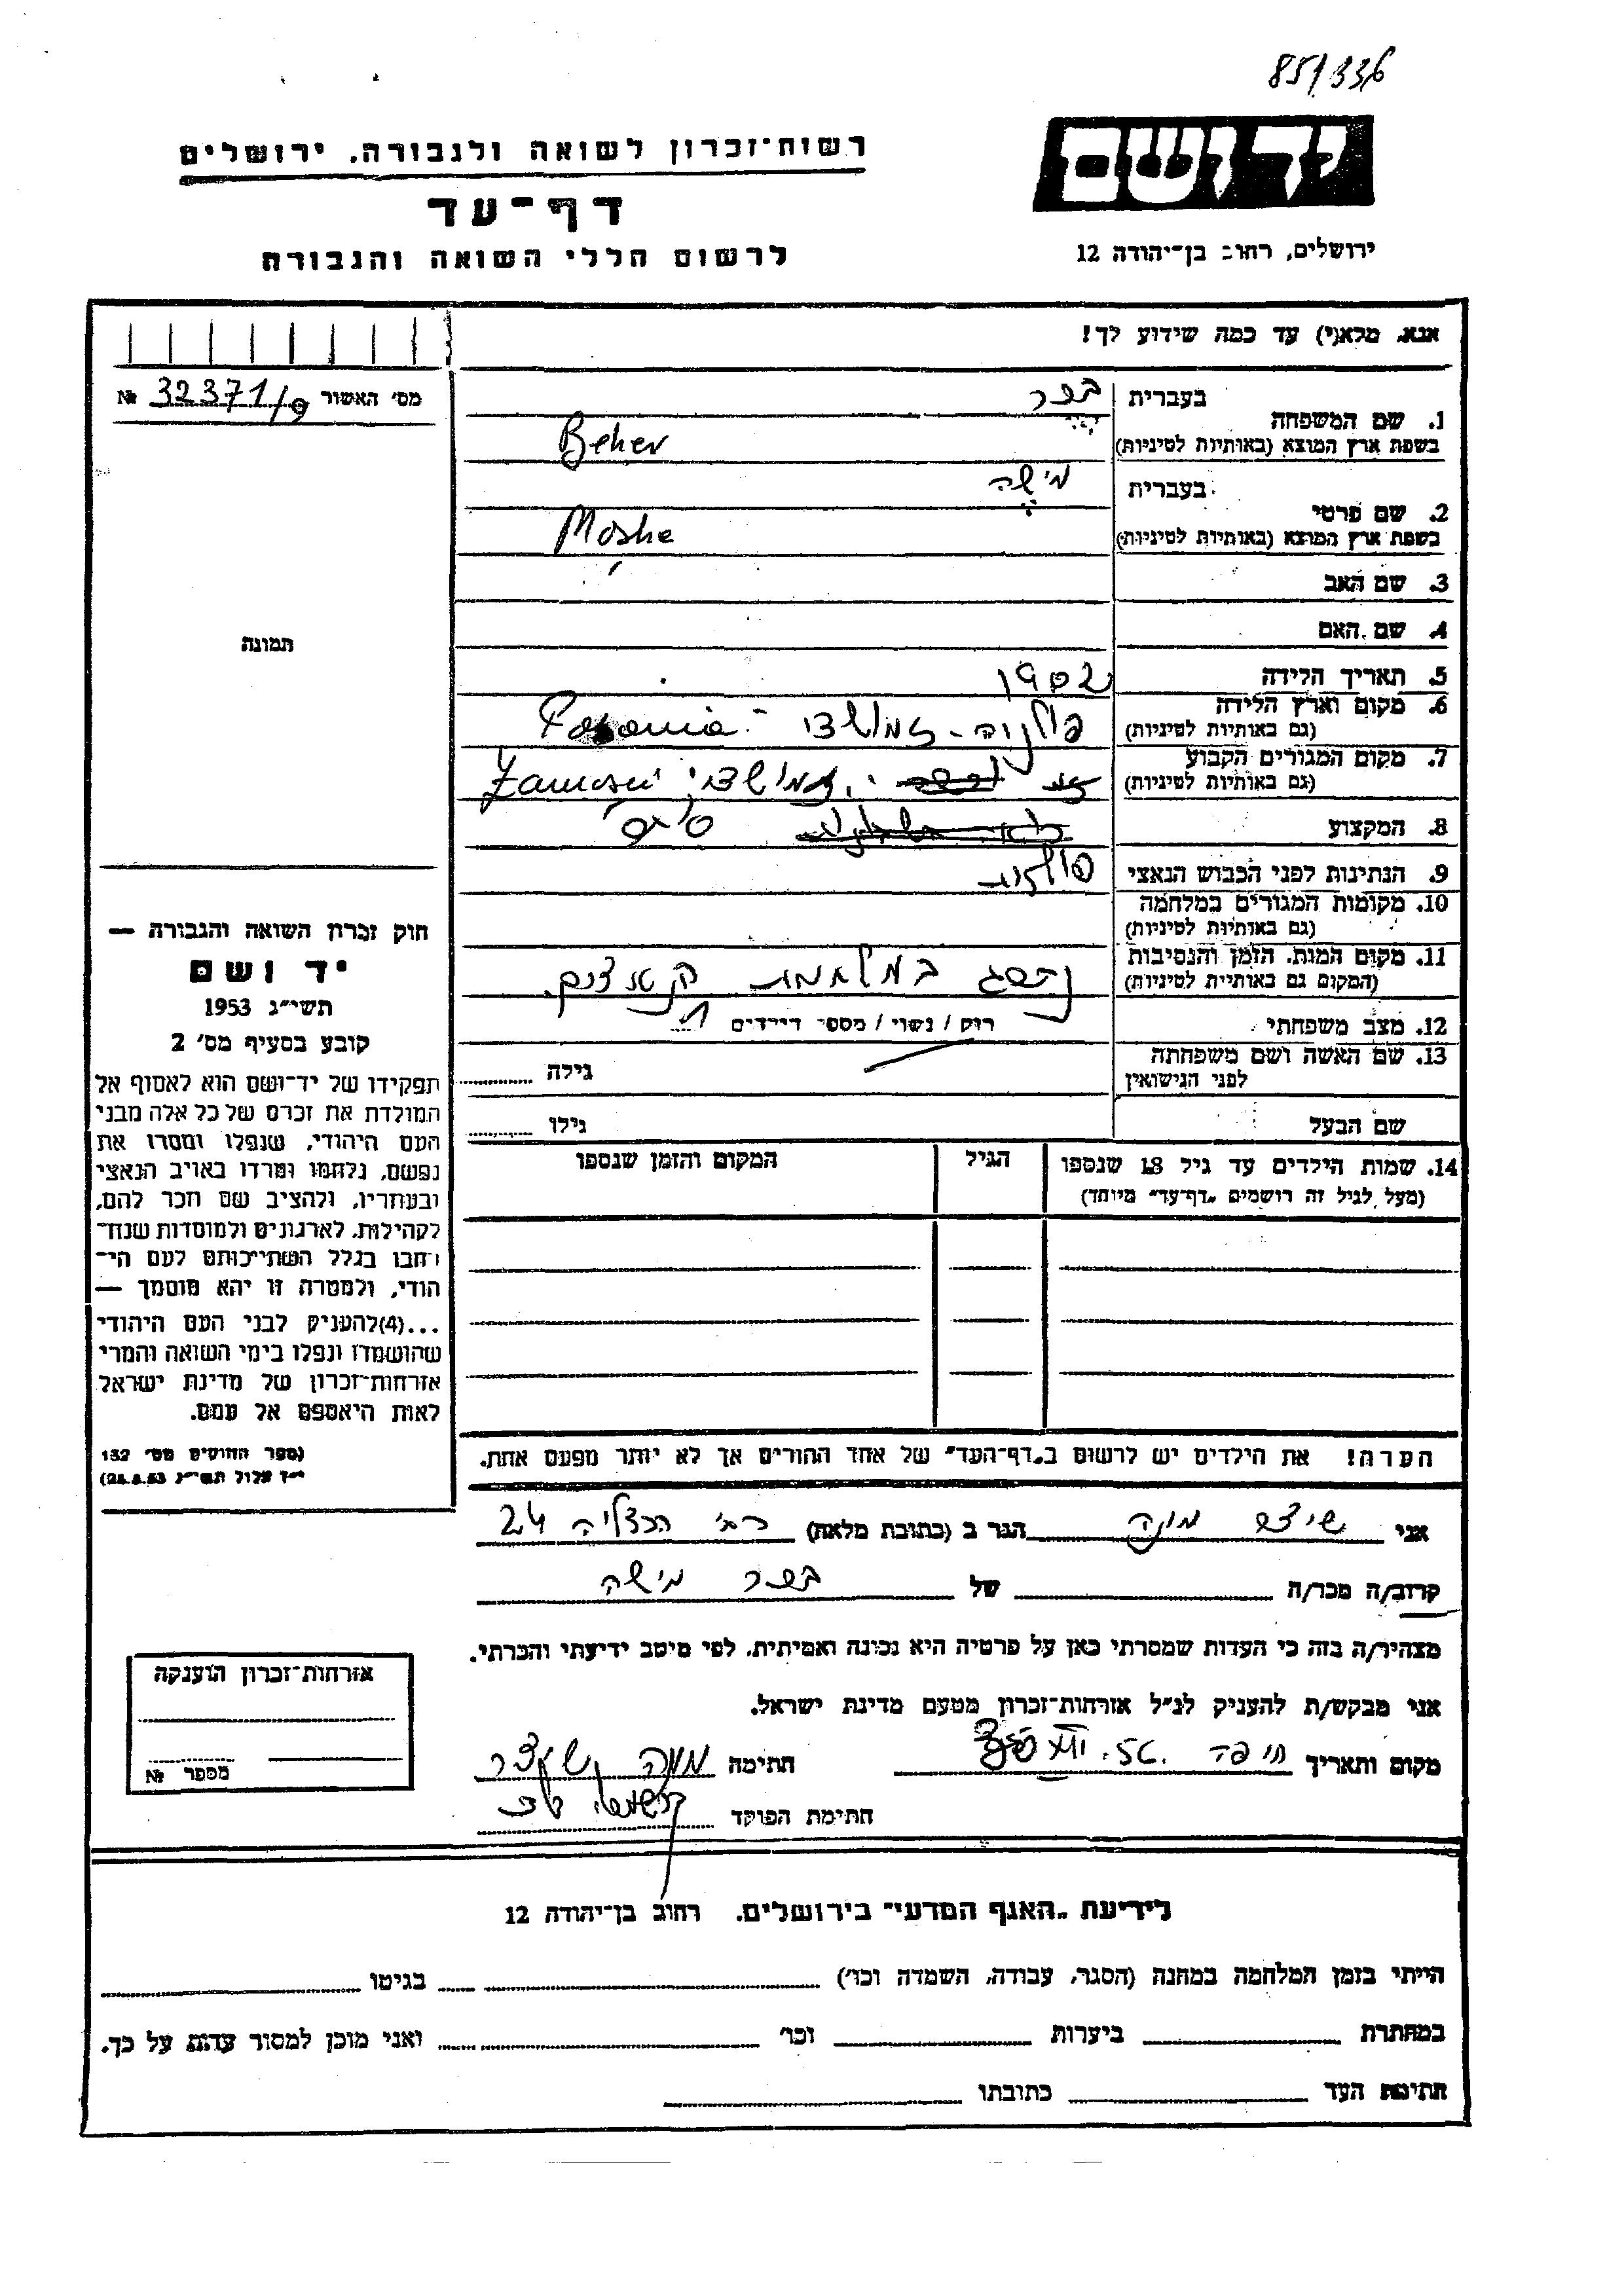 85/336
יד ושם
רשות־זכרון לשואה ולגבורה, ירושלים
דף־עד
לרשום חללי השואה והגבורה
ירושלים, רחוב בן־יהודה 12
אנא, מלא(י) עד כמה שידוע לך!
מס׳ האשור № 32371/9
תמונה
1. שם המשפחה
בעברית
בכר
בשפת ארץ המוצא (באותיות לטיניות)
Beher
2. שם פרטי
בעברית
מישה
בשפת ארץ המוצא (באותיות לטיניות)
Moshe
3. שם האב
4. שם האם
5. תאריך הלידה 1902
6. מקום וארץ הלידה
(גם באותיות לטיניות)
7. מקום המגורים הקבוע
(גם באותיות לטיניות)
8. המקצוע
9. הנתינות לפני הכבוש הנאצי
10. מקומות המגורים במלחמה
(גם באותיות לטיניות)
11. מקום המות, הזמן והנסיבות
(המקום גם באותיות לטיניות)
12. מצב משפחתי רווק / נשוי / מספר הילדים 1
13. שם האשה ושם משפחתה
לפני הנישואין
גילה
שם הבעל גילו
14. שמות הילדים עד גיל 18 שנספו
(מעל לגיל זה רושמים „דף־עד״ מיוחד)
הגיל
המקום והזמן שנספו
חוק זכרון השואה והגבורה —
יד ושם
תשי״ג 1953
קובע בסעיף מס׳ 2
תפקידו של יד־ושם הוא לאסוף אל
המולדת את זכרם של כל אלה מבני
העם היהודי, שנפלו ומסרו את
נפשם, נלחמו ומרדו באויב הנאצי
ובעוזריו, ולהציב שם וזכר להם,
לקהילות, לארגונים ולמוסדות שנח־
רבו בגלל השתייכותם לעם הי־
הודי, ולמטרה זו יהא מוסמך —
...(4) להעניק לבני העם היהודי
שהושמדו ונפלו בימי השואה והמרי
אזרחות־זכרון של מדינת ישראל
לאות היאספם אל עמם.
(ספר החוקים מס׳ 132
י״ד אלול תשי״ג 28.8.53)
הערה! את הילדים יש לרשום ב„דף־העד״ של אחד ההורים אך לא יותר מפעם אחת.
אני מונה הגר ב (כתובת מלאה) רח׳ הרצליה 24
קרוב/ה מכר/ה של בכר מישה
מצהיר/ה בזה כי העדות שמסרתי כאן על פרטיה היא נכונה ואמיתית, לפי מיטב ידיעתי והכרתי.
אני מבקש/ת להעניק לנ״ל אזרחות־זכרון מטעם מדינת ישראל.
מקום ותאריך חיפה חתימה
חתימת הפוקד
אזרחות־זכרון הוענקה
מספר №
לידיעת „האגף המדעי״ בירושלים, רחוב בן־יהודה 12
הייתי בזמן המלחמה במחנה (הסגר, עבודה, השמדה וכו׳) בגיטו
במחתרת ביערות וכו׳ ואני מוכן למסור עדות על כך.
חתימת העד כתובתו